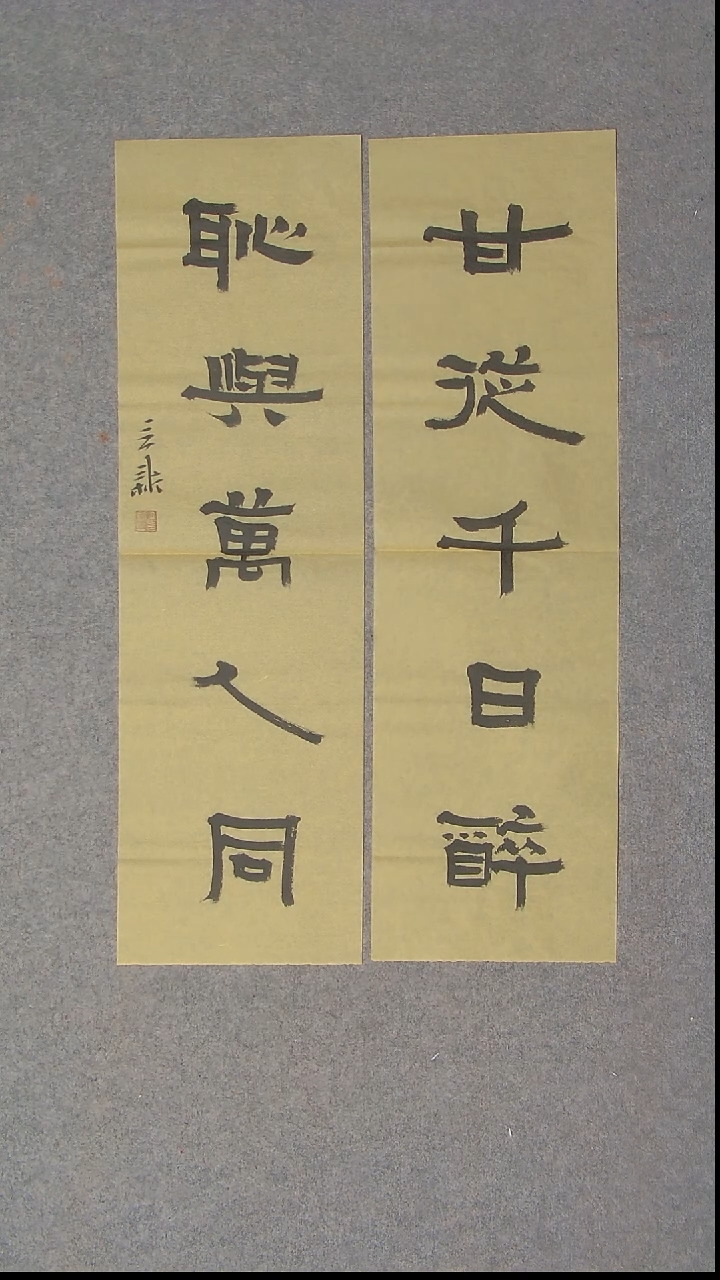 甘從千日醉
恥與萬人同